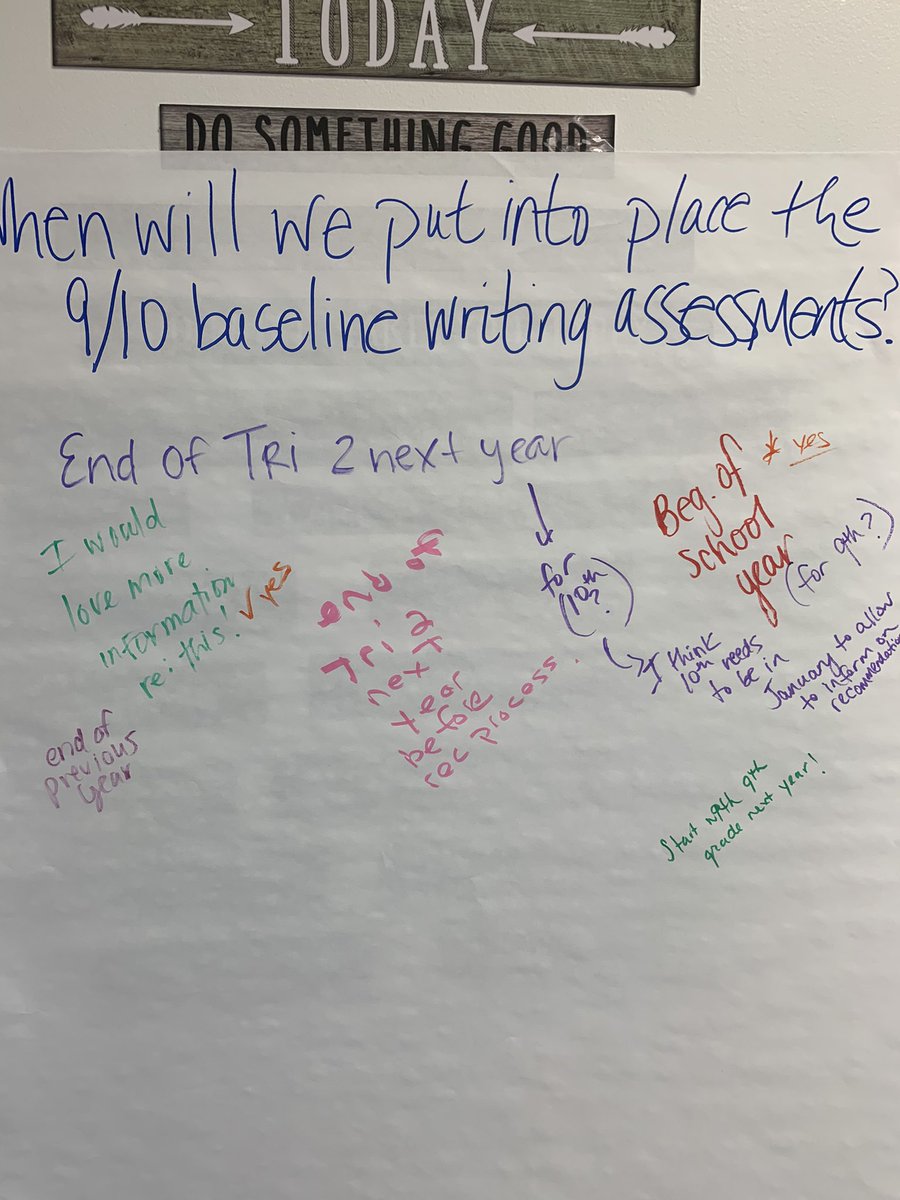 TODAY
DO SOMETHING GOOD
When will we put into place the
9/10 baseline writing assessments?
End of TRi 2 next year
I would
love more
information
re: this!
✓ yes
end of
previous
year
end of
Tri 2
next
year
before
rec process.
for
(10th?)
I think
10th needs
to be in
January to allow
to inform on
recommendation
Beg. of
School
year
* yes
(for 9th?)
Start with 9th
grade next year!